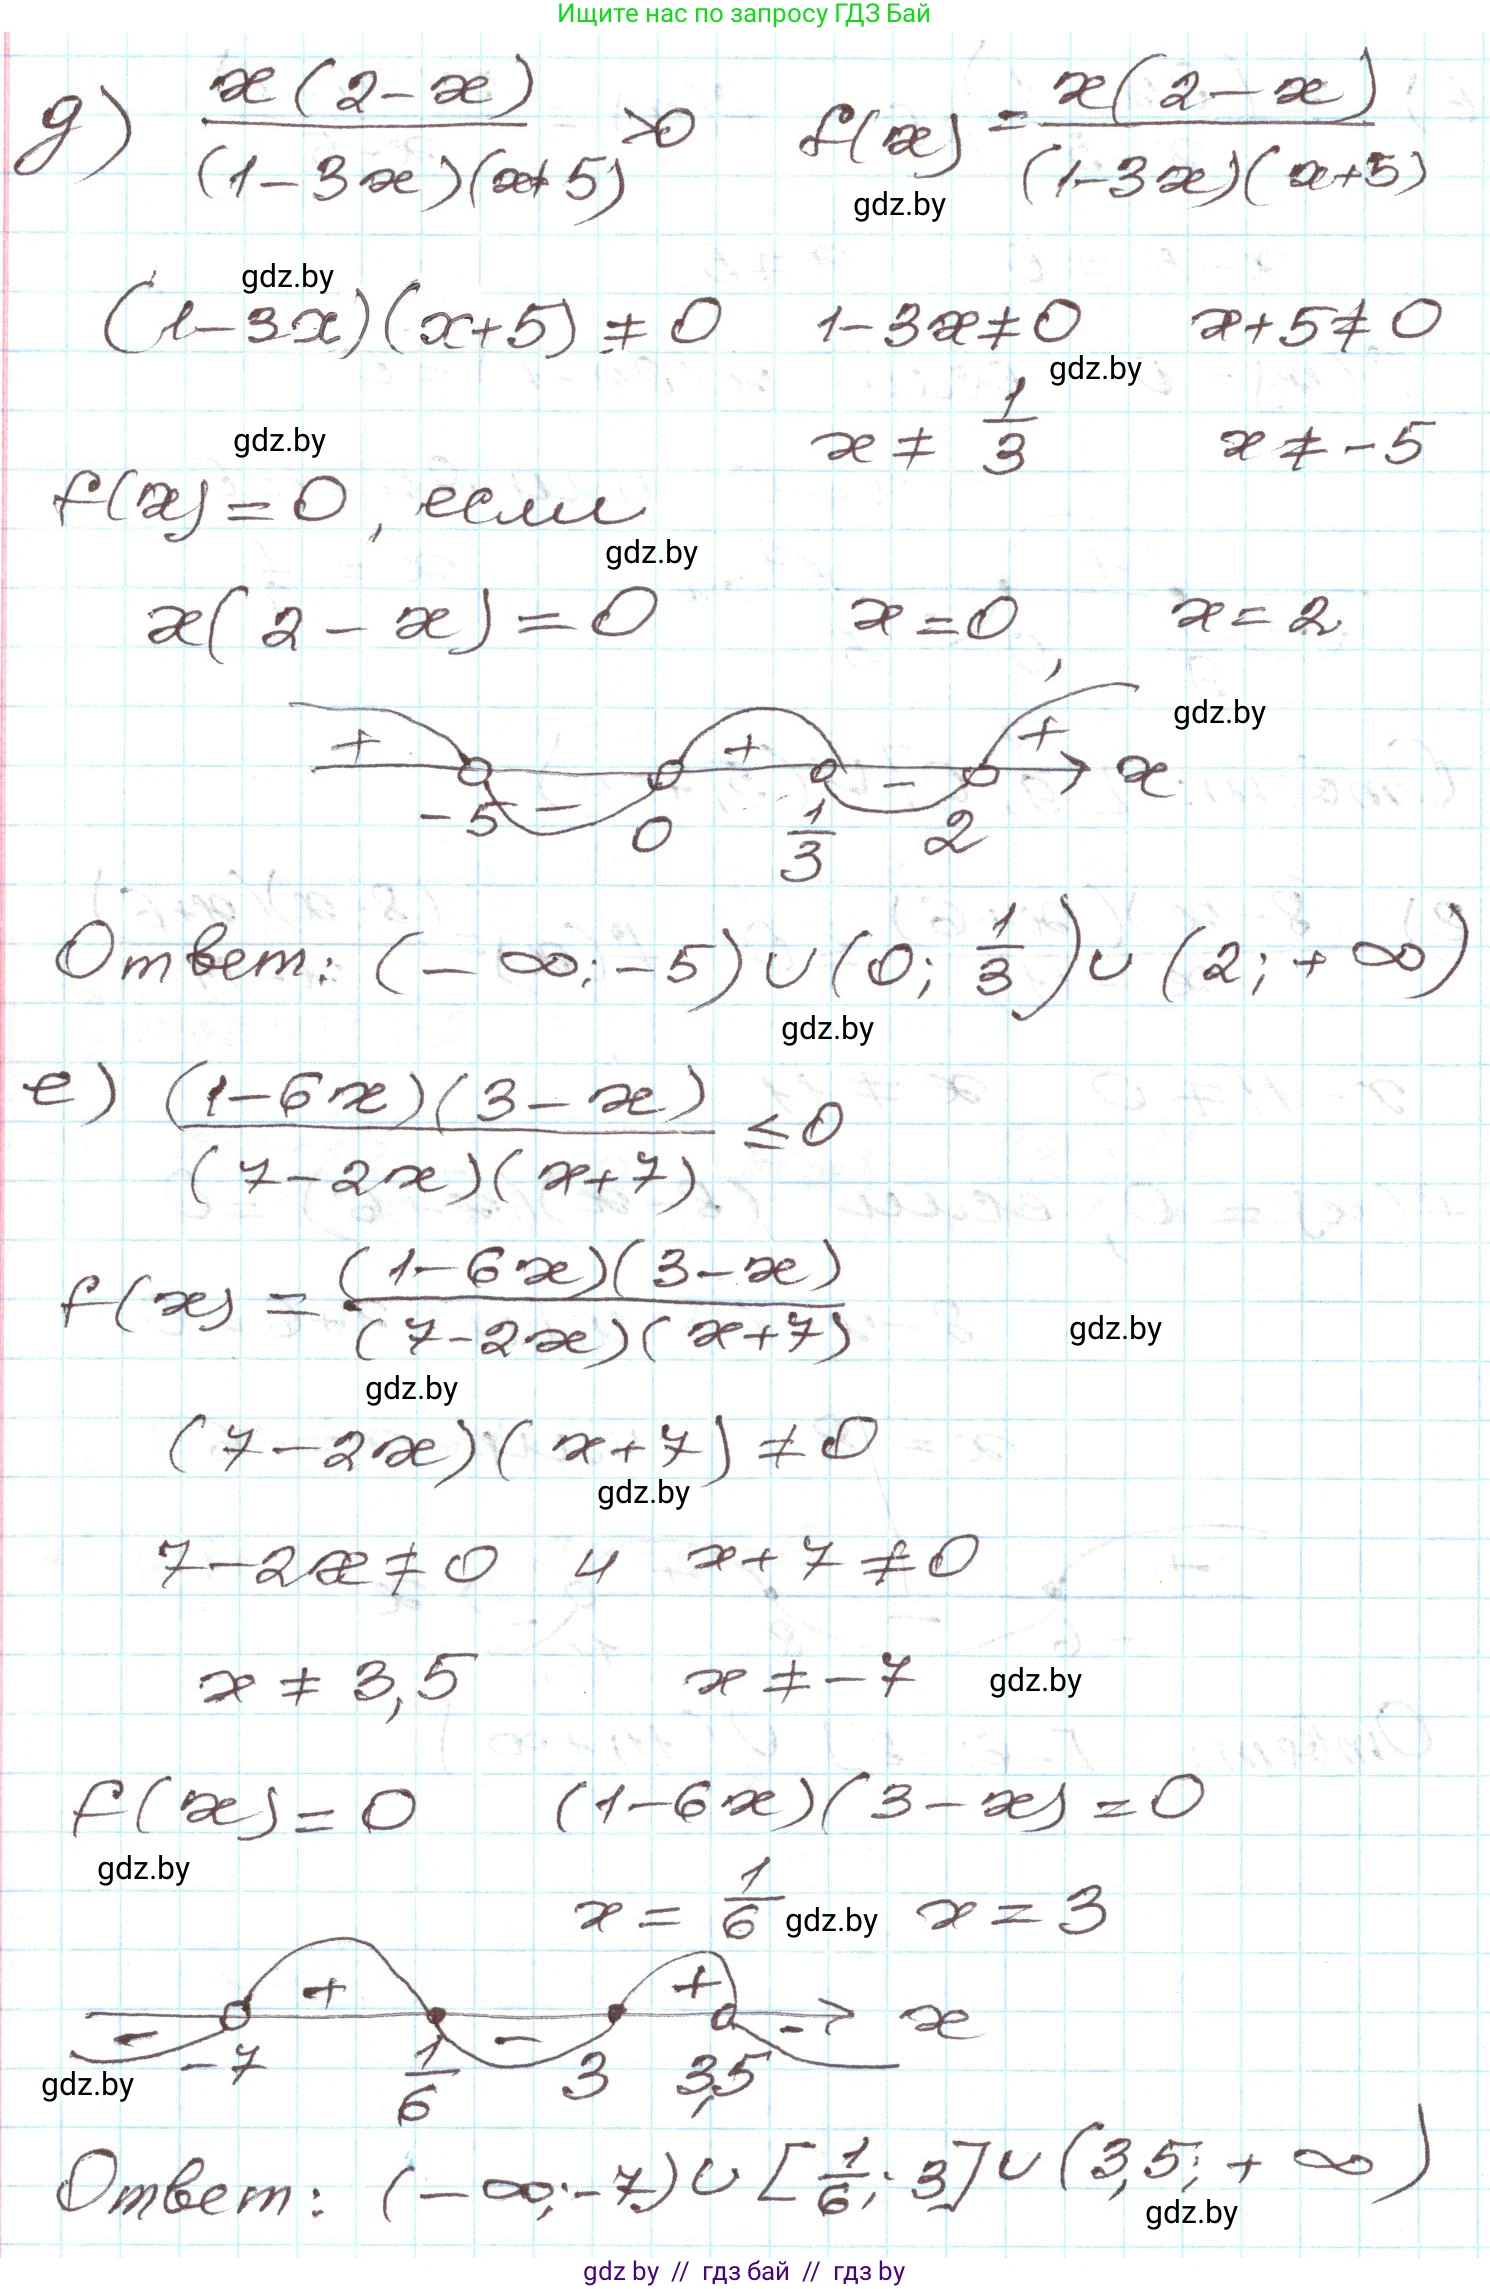 Ищите нас по запросу ГДЗ Бай
д) x(2-x)/((1-3x)(x+5)) >0 f(x) = x(2-x)/((1-3x)(x+5))
gdz.by
gdz.by
(1-3x)(x+5) ≠ 0 1-3x≠0 x+5≠0
gdz.by
x ≠ 1/3 x ≠ -5
gdz.by
f(x) = 0, если
gdz.by
x(2-x) = 0 x=0, x=2
gdz.by
+ - + - + x
-5 0 1/3 2
Ответ: (-∞;-5)∪(0; 1/3)∪(2;+∞)
gdz.by
е) (1-6x)(3-x)/((7-2x)(x+7)) ≤0
f(x) = (1-6x)(3-x)/((7-2x)(x+7))
gdz.by
gdz.by
(7-2x)(x+7) ≠0
gdz.by
7-2x≠0 и x+7≠0
x ≠ 3,5 x ≠ -7
gdz.by
f(x)=0 (1-6x)(3-x)=0
gdz.by
x = 1/6 gdz.by x = 3
- + - + - x
-7 1/6 3 3,5
gdz.by
Ответ: (-∞;-7)∪[1/6;3]∪(3,5;+∞)
gdz.by
gdz.by // гдз бай // гдз by